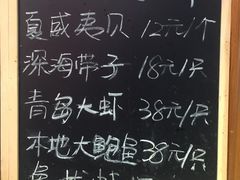 夏威夷贝 12元/个
深海带子 18元/只
青岛大虾 38元/只
本地大鲍鱼 38元/只